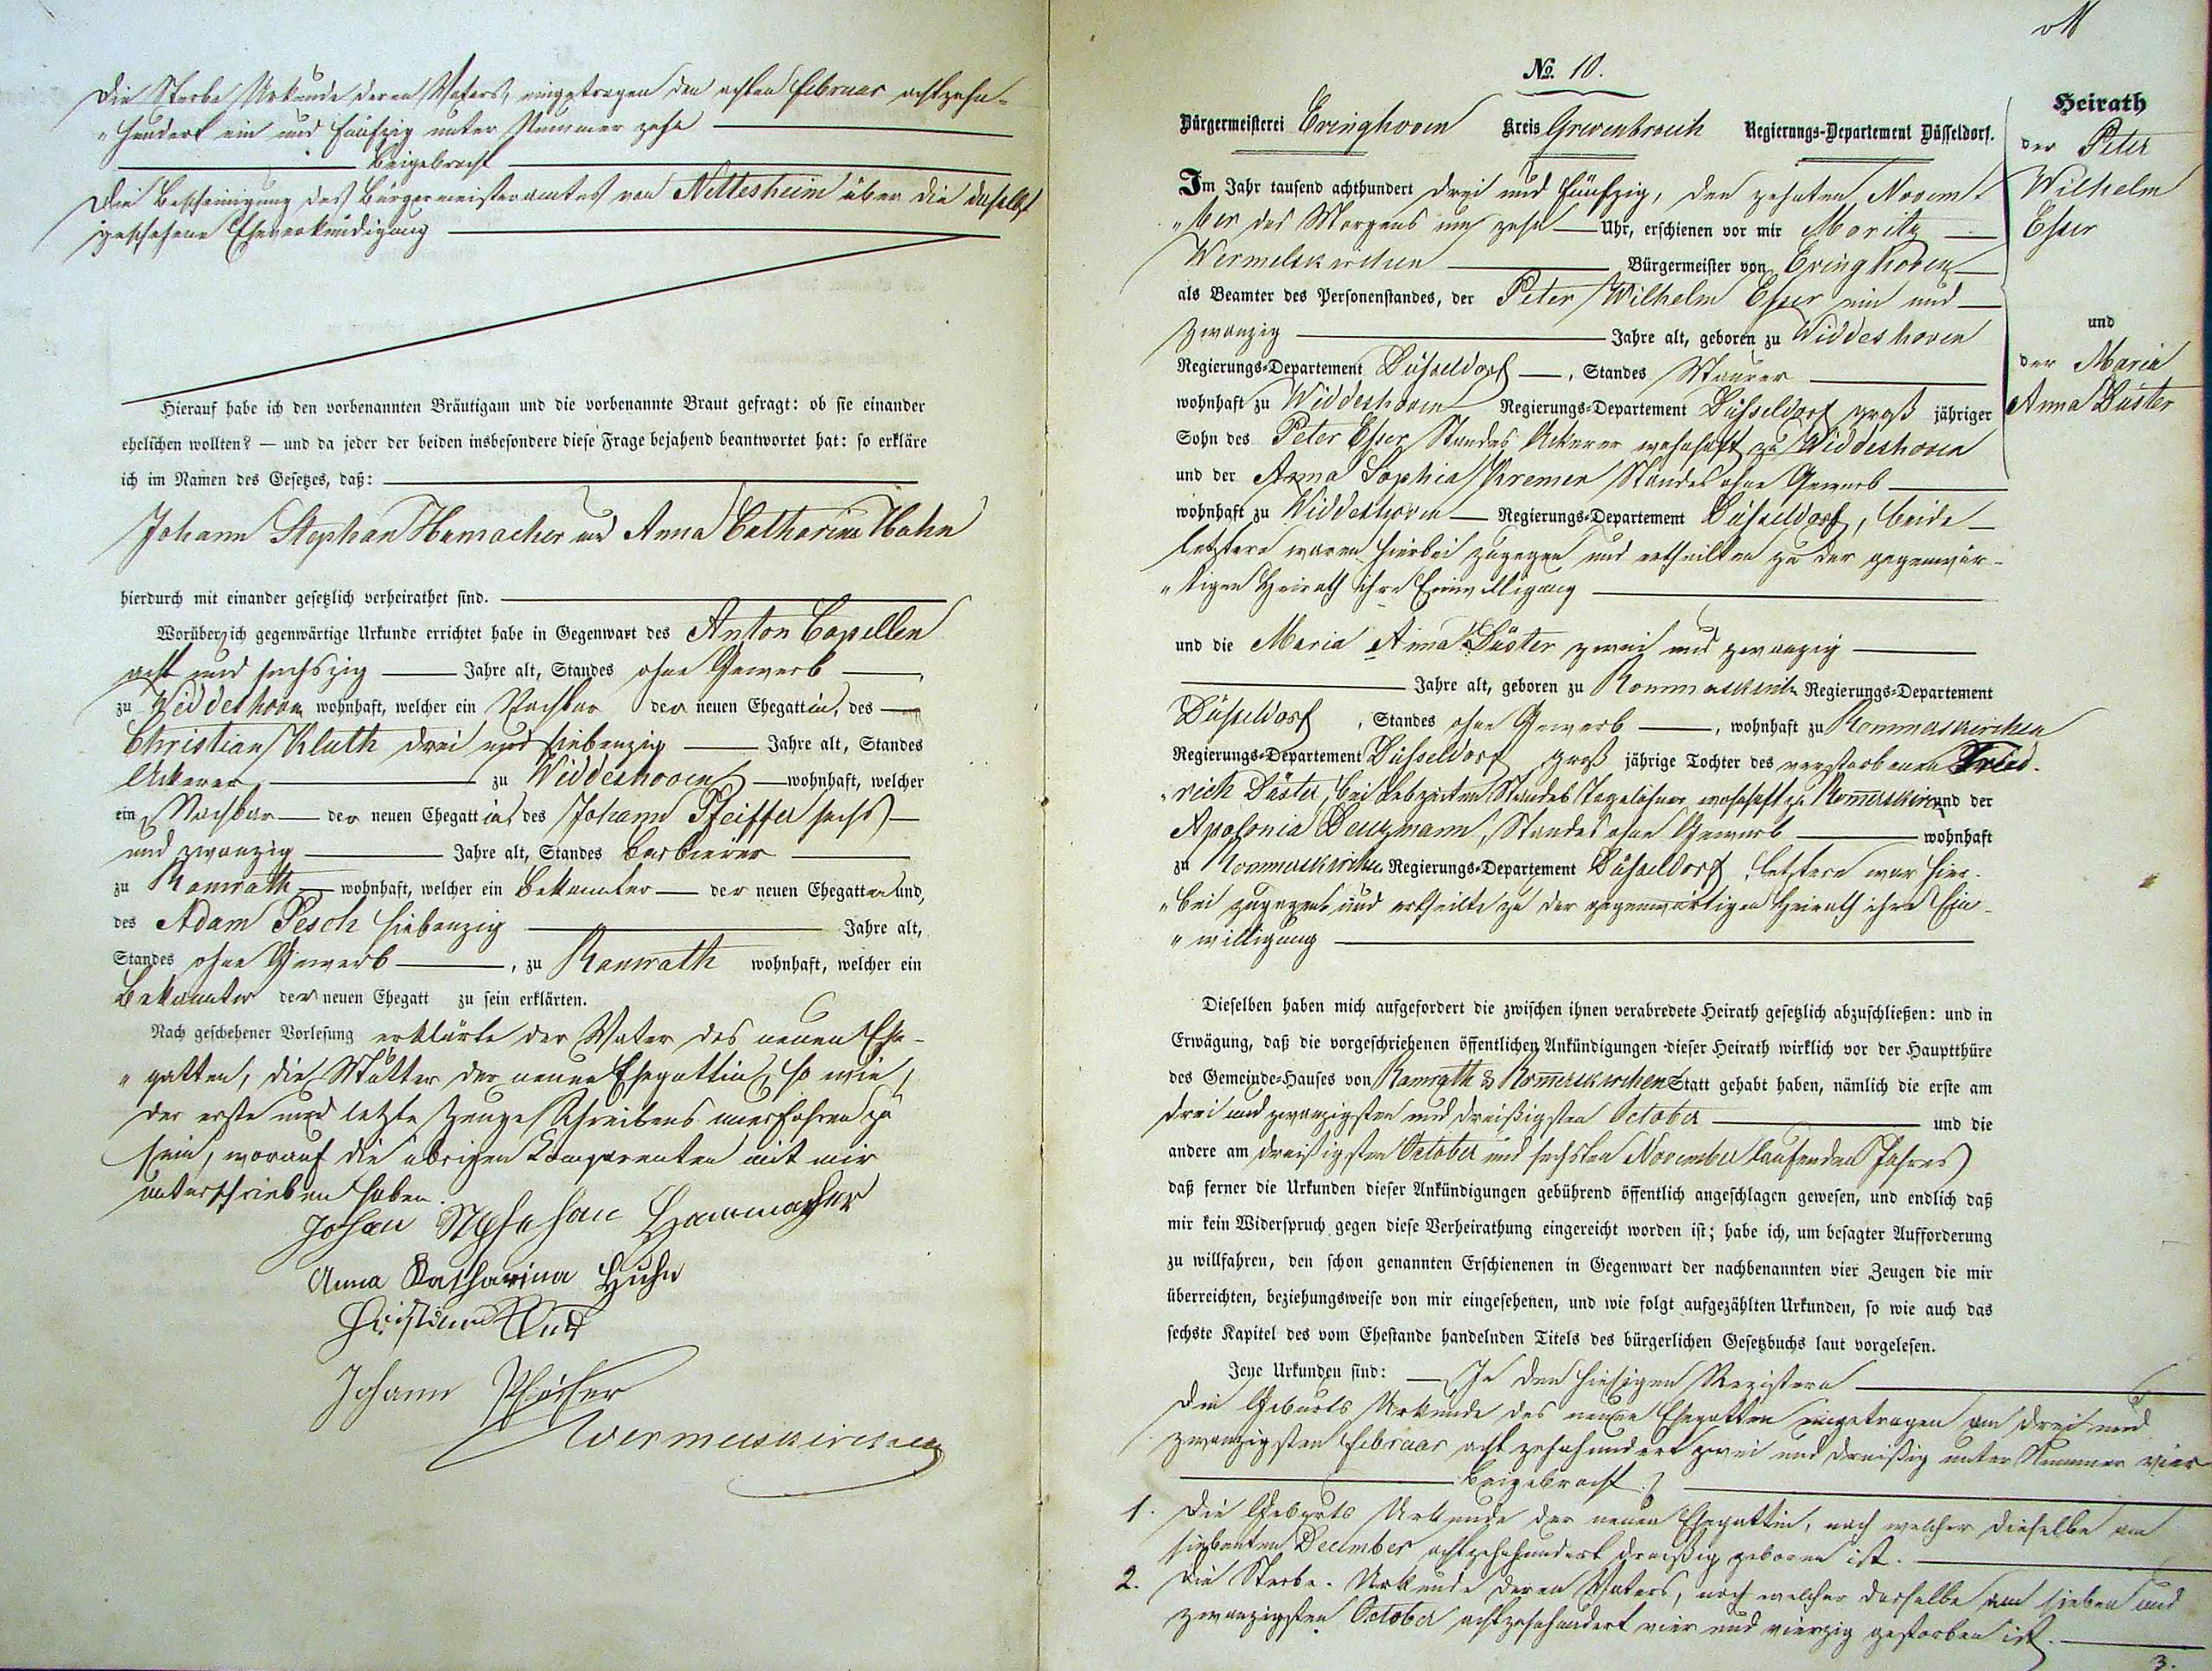 Die Sterbe Urkunde deren Vaters, eingetragen den achten Februar achtzehn-
"hundert ein und fünfzig unter Nummer zehn
beigebracht
Die Bescheinigung des Bürgermeisteramtes von Nettesheim über die daselbst
geschehene Eheverkündigung
Hierauf habe ich den vorbenannten Bräutigam und die vorbenannte Braut gefragt: ob sie einander
ehelichen wollten? — und da jeder der beiden insbesondere diese Frage bejahend beantwortet hat: so erkläre
ich im Namen des Gesetzes, daß:
Johann Stephan Hamacher und Anna Catharina Hahn
hierdurch mit einander gesetzlich verheirathet sind.
Worüber ich gegenwärtige Urkunde errichtet habe in Gegenwart des Anton Capellen
acht und sechszig Jahre alt, Standes ohne Gewerb,
zu Widdeshoven wohnhaft, welcher ein Nachbar der neuen Ehegattin, des
Christian Kluth drei und siebenzig Jahre alt, Standes
Ackerer zu Widdeshoven wohnhaft, welcher
ein Nachbar der neuen Ehegattin, des Johann Pfeiffer sechs
und zwanzig Jahre alt, Standes Barbierer
zu Ramrath wohnhaft, welcher ein Bekannter der neuen Ehegatten und,
des Adam Pesch siebenzig Jahre alt,
Standes ohne Gewerb, zu Ramrath wohnhaft, welcher ein
Bekannter der neuen Ehegatt zu sein erklärten.
Nach geschehener Vorlesung erklärte der Vater des neuen Ehe-
"gatten, die Mutter der neuen Ehegattin, so wie
der erste und letzte Zeuge Schreibens unerfahren zu
sein, worauf die übrigen Comparenten mit mir
unterschrieben haben.
Johan Stephan Hammacher
Anna Katharina Huhn
Christian Klut
Johann Pfeiffer
Wermelskirchen
№. 10.
Bürgermeisterei Evinghoven Kreis Grevenbroich Regierungs-Departement Düsseldorf.
Im Jahr tausend achthundert drei und fünfzig, den zehnten Novem-
"ber des Morgens um zehn Uhr, erschienen vor mir Moritz
Wermelskirchen Bürgermeister von Evinghoven
als Beamter des Personenstandes, der Peter Wilhelm Esser ein und
zwanzig Jahre alt, geboren zu Widdeshoven
Regierungs-Departement Düsseldorf, Standes Maurer
wohnhaft zu Widdeshoven Regierungs-Departement Düsseldorf groß jähriger
Sohn des Peter Esser Standes Ackerer wohnhaft zu Widdeshoven
und der Anna Sophia Kremer Standes ohne Gewerb
wohnhaft zu Widdeshoven Regierungs-Departement Düsseldorf, beide
letztere waren hierbei zugegen und ertheilten zu der gegenwär-
"tigen Heirath ihre Einwilligung
und die Maria Anna Düster zwei und zwanzig
Jahre alt, geboren zu Rommerskirchen Regierungs-Departement
Düsseldorf, Standes ohne Gewerb, wohnhaft zu Rommerskirchen
Regierungs-Departement Düsseldorf groß jährige Tochter des verstorbenen Fried-
"rich Düster, bei Lebzeiten Standes Tagelöhner wohnhaft zu Romerskirchen und der
Apolonia Standes ohne Gewerb wohnhaft
zu Rommerskirchen Regierungs-Departement Düsseldorf, letztere war hier-
"bei zugegen und ertheilte zu der gegenwärtigen Heirath ihre Ein-
"willigung
Dieselben haben mich aufgefordert die zwischen ihnen verabredete Heirath gesetzlich abzuschließen: und in
Erwägung, daß die vorgeschriebenen öffentlichen Ankündigungen dieser Heirath wirklich vor der Hauptthüre
des Gemeinde-Hauses von Ramrath & Romerskirchen Statt gehabt haben, nämlich die erste am
drei und zwanzigsten und dreißigsten October und die
andere am dreißigsten October und sechsten November laufenden Jahres
daß ferner die Urkunden dieser Ankündigungen gebührend öffentlich angeschlagen gewesen, und endlich daß
mir kein Widerspruch gegen diese Verheirathung eingereicht worden ist; habe ich, um besagter Aufforderung
zu willfahren, den schon genannten Erschienenen in Gegenwart der nachbenannten vier Zeugen die mir
überreichten, beziehungsweise von mir eingesehenen, und wie folgt aufgezählten Urkunden, so wie auch das
sechste Kapitel des vom Ehestande handelnden Titels des bürgerlichen Gesetzbuchs laut vorgelesen.
Jene Urkunden sind: In den hiesigen Registern
Die Geburts Urkunde des neuen Ehegatten eingetragen am drei und
zwanzigsten Februar achtzehnhundert zwei und dreißig unter Nummer vier
beigebracht:
1. Die Geburts Urkunde der neuen Ehegattin, nach welcher dieselbe am
siebenten December achtzehnhundert dreißig geboren ist.
2. Die Sterbe-Urkunde deren Vaters, nach welcher derselbe am sieben und
zwanzigsten October achtzehnhundert vier und vierzig gestorben ist.
3.
Heirath
der Peter
Wilhelm
Esser
und
der Maria
Anna Düster